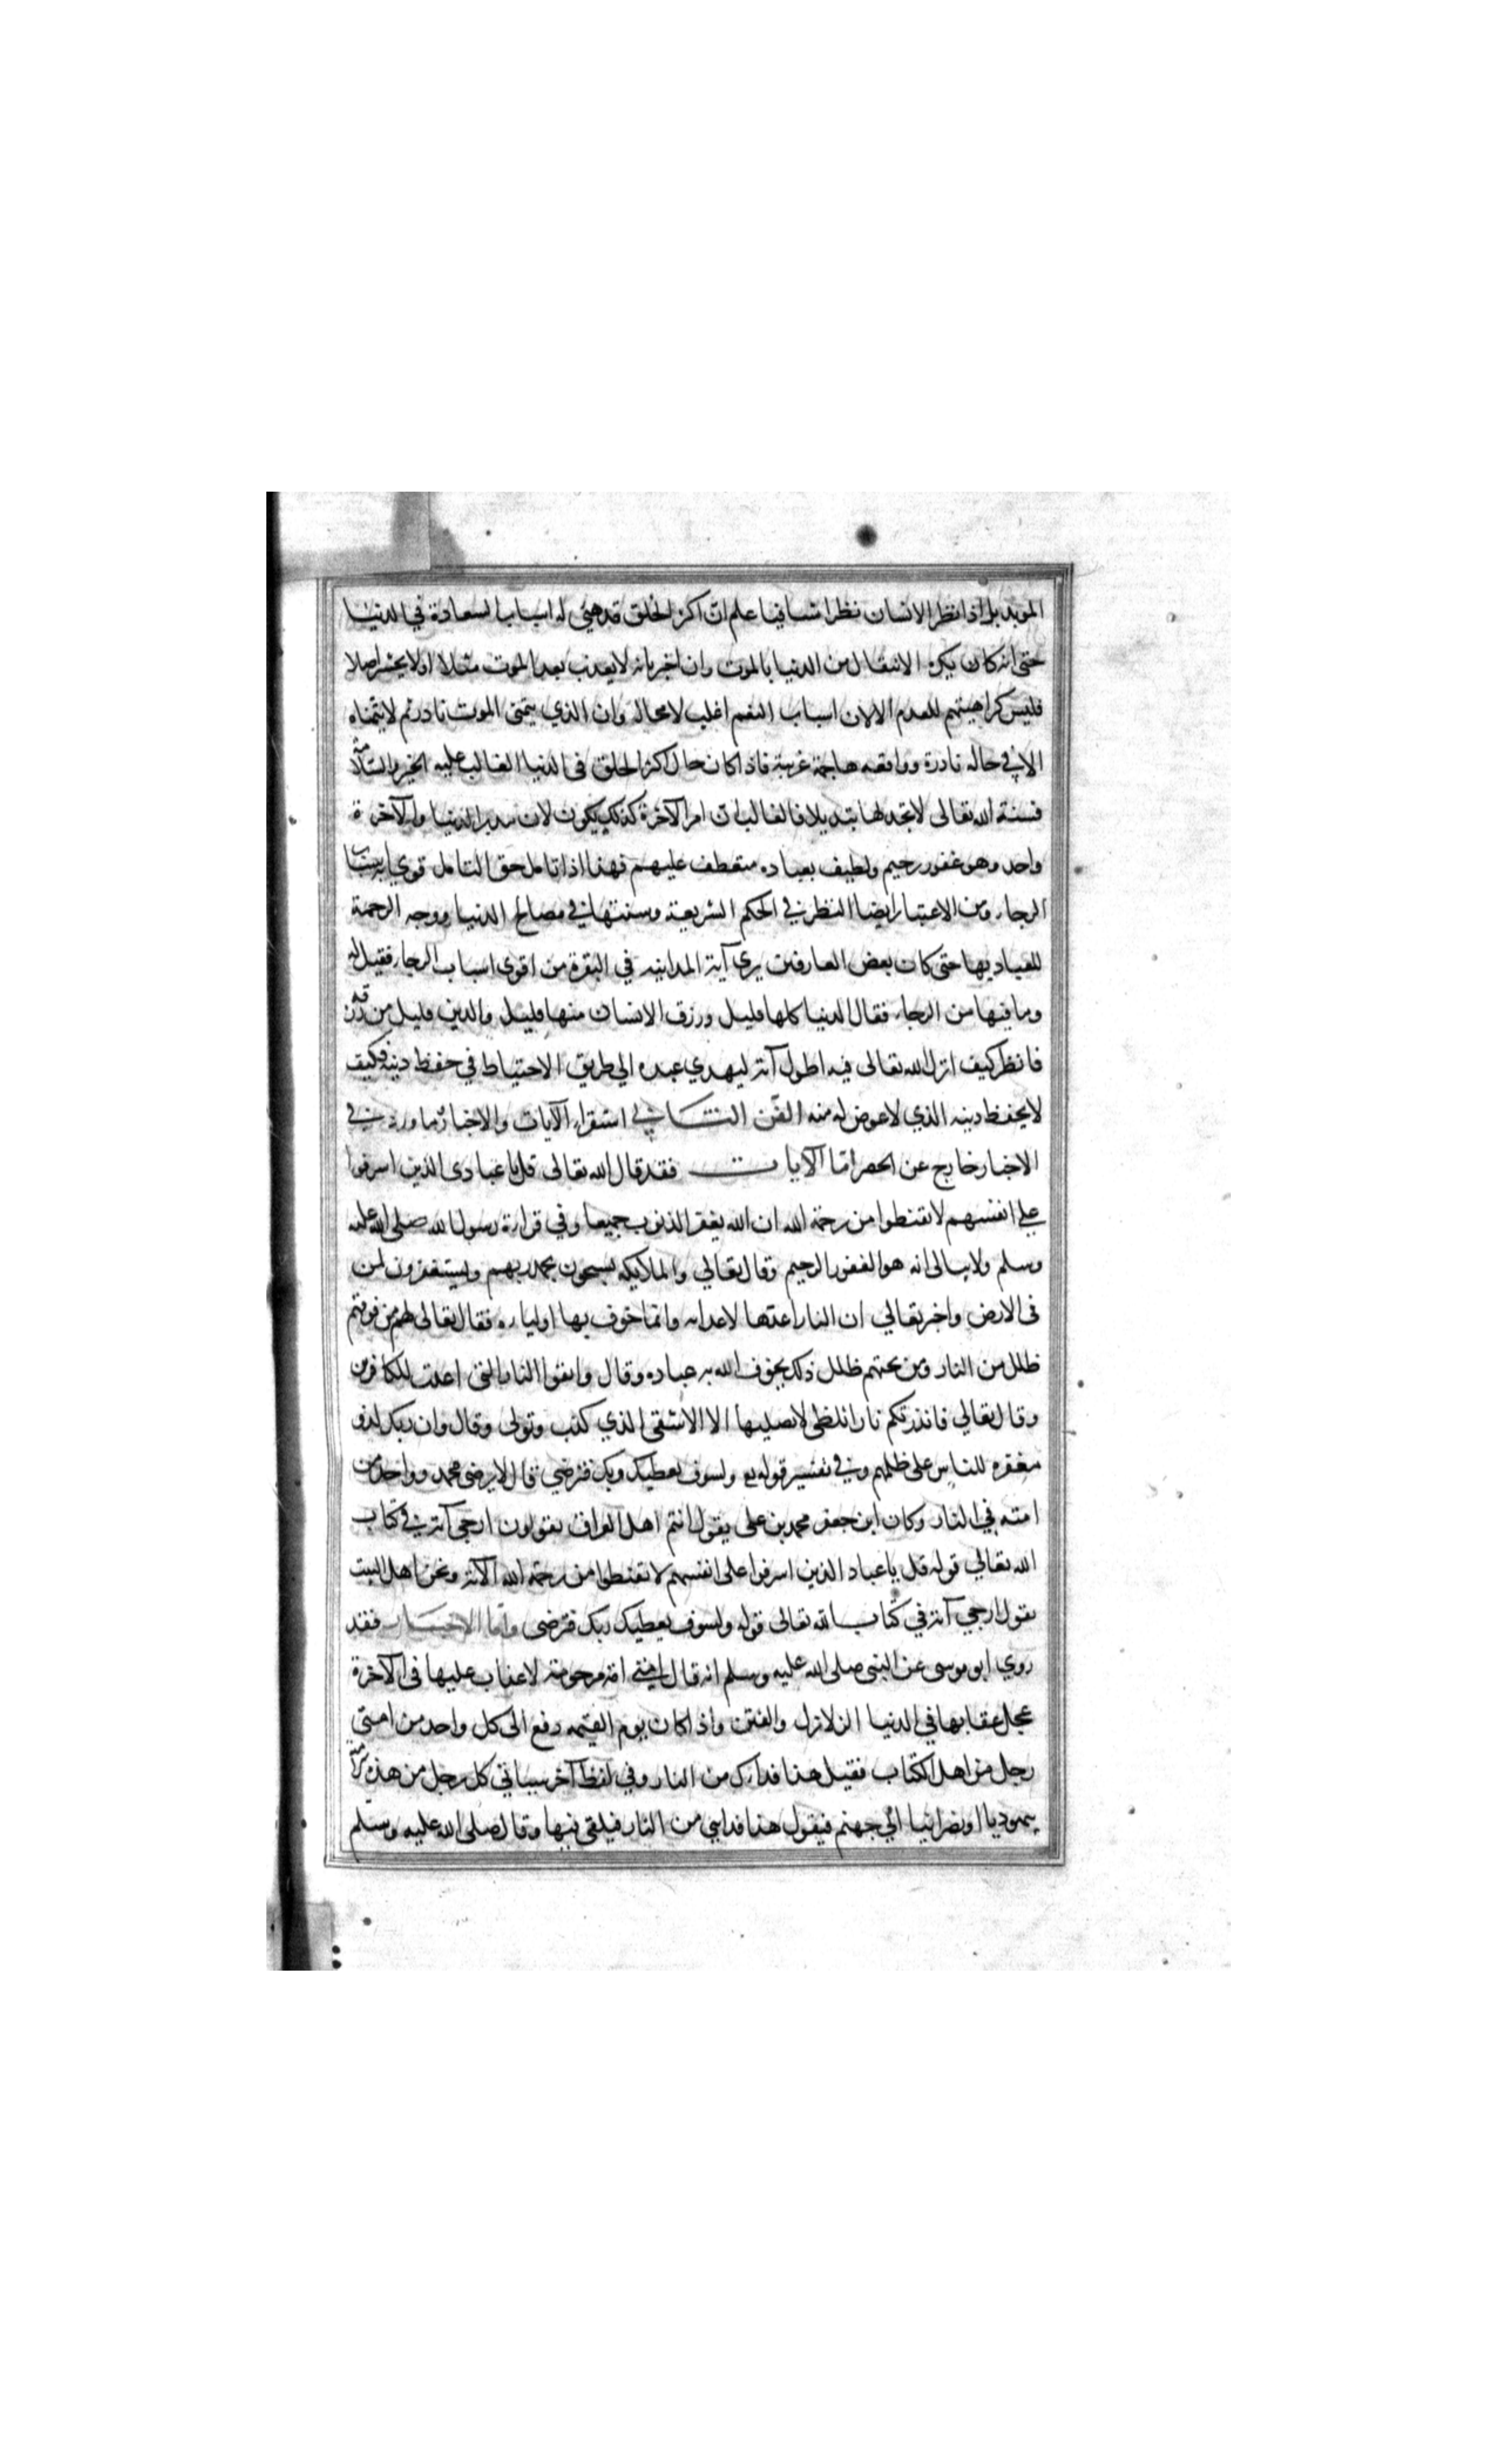 المؤبد بل اذا نظر الانسان نظرا شافيا علم ان اكثر الخلق قد هيئ له اسباب السعادة في الدنيا
حتى انه كان يكره الانتقال من الدنيا بالموت وان اخبر بانه لا يعذب بعد الموت مثلا او لا يحشر اصلا
فليس كراهيتهم للعدم الا لان اسباب النعم اغلب لا محالة وان الذي يتمنى الموت نادر ثم لا يتمناه
الا في حالة نادرة وواقعه هاجمة غريبة فاذا كان حال اكثر الخلق في الدنيا الغالب عليه الخير والسلامة
فسنة الله تعالى لا تجد لها تبديلا فالغالب ان امر الآخرة كذلك يكون لان مدبر الدنيا والآخرة
واحد وهو غفور رحيم ولطيف بعباده متعطف عليهم فهذا اذا تامل حق التامل قوي به اسباب
الرجاء ومن الاعتبار ايضا النظر في الحكم الشريعة وسنتها في مصالح الدنيا ووجه الرحمة
للعباد بها حتى كان بعض العارفين يرى آية المداينه في البقرة من اقوى اسباب الرجاء فقيل له
وما فيها من الرجاء فقال الدنيا كلها قليل ورزق الانسان منها قليل والدين قليل من رزقه
فانظر كيف انزل الله تعالى فيه اطول آية ليهدي عبده الي طريق الاحتياط في حفظ دينه فكيف
لا يحفظ دينه الذي لا عوض له منه الفن الثاني في استقراء الآيات والاخبار فما ورد في
الاخبار خارج عن الحصر اما الآيات فقد قال الله تعالى قل يا عبادى الذين اسرفوا
علي انفسهم لا تقنطوا من رحمة الله ان الله يغفر الذنوب جميعا وفي قراءة رسول الله صلى الله عليه
وسلم ولا يبالى انه هو الغفور الرحيم وقال تعالي والملائكه يسبحون بحمد ربهم ويستغفرون لمن
فى الارض واخبر تعالي ان النار اعدها لاعدائه وانما خوف بها اولياءه فقال تعالى لهم من فوقهم
ظلل من النار ومن تحتهم ظلل ذلك يخوف الله به عباده وقال واتقوا النار التي اعدت للكافرين
وقال تعالي فانذرتكم نارا تلظى لا يصليها الا الاشقى الذي كذب وتولى وقال وان ربك لذو
مغفره للناس على ظلمهم وفي تفسير قوله تع ولسوف يعطيك ربك فترضي قال لا يرضى محمد وواحد من
امته في النار وكان ابن جعفر محمد بن على يقول انتم اهل العراق تقولون ارجى آية في كتاب
الله تعالي قوله قل يا عباد الذين اسرفوا على انفسهم لا تقنطوا من رحمة الله الآية ونحن اهل البيت
نقول ارجي آية في كتاب الله تعالى قوله ولسوف يعطيك ربك فترضى واما الاخبار فقد
روي ابو موسى عن النبي صلى الله عليه وسلم انه قال امتي امة مرحومة لا عذاب عليها فى الآخرة
عجل عقابها في الدنيا الزلازل والفتن واذا كان يوم القيمه دفع الى كل واحد من امتى
رجل من اهل الكتاب فقيل هذا فداك من النار وفي لفظ آخر سياتي كل رجل من هذه الامة
بيهوديا او نصرانيا الي جهنم فيقول هذا فدايي من النار فيلقى فيها وقال صلى الله عليه وسلم